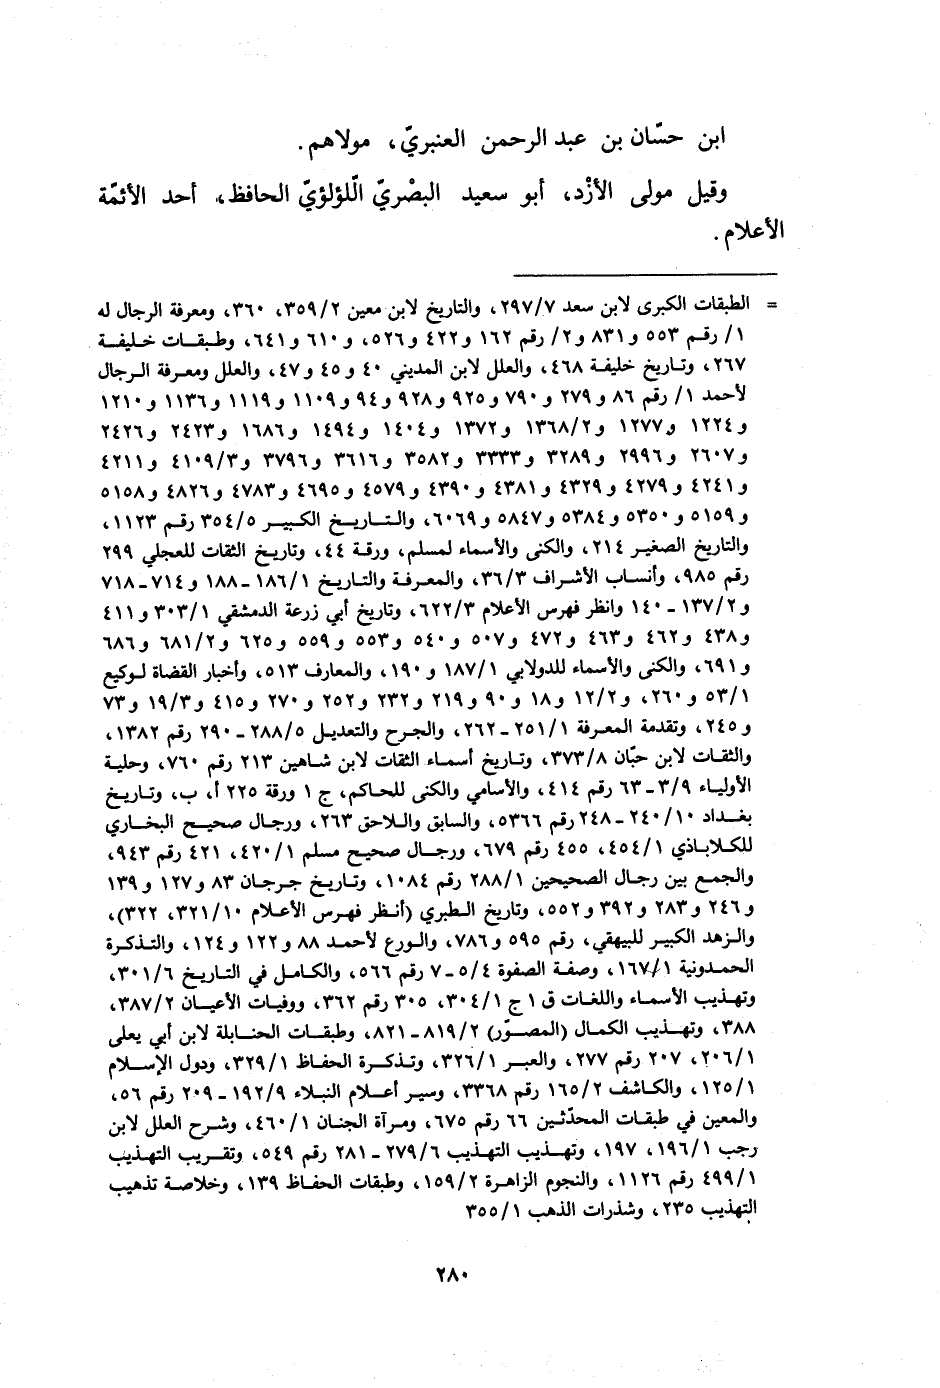 ابن حسّان بن عبد الرحمن العنبريّ، مولاهم.
وقيل مولى الأزْد، أبو سعيد البصْريّ الّلؤلؤيّ الحافظ، أحد الأئمّة
الأعلام.
= الطبقات الكبرى لابن سعد ٢٩٧/٧، والتاريخ لابن معين ٣٥٩/٢، ٣٦٠، ومعرفة الرجال له
١/ رقم ٥٥٣ و٨٣١ و٢/ رقم ١٦٢ و٤٢٢ و٥٢٦، و٦١٠ و٦٤١، وطبقات خليفة
٢٦٧، وتاريخ خليفة ٤٦٨، والعلل لابن المديني ٤٠ و٤٥ و٤٧، والعلل ومعرفة الرجال
لأحمد ١/ رقم ٨٦ و٢٧٩ و٧٩٠ و٩٢٥ و٩٢٨ و٩٤ و١١٠٩ و١١١٩ و١١٣٦ و١٢١٠
و١٢٢٤ و١٢٧٧ و١٣٦٨/٢ و١٣٧٢ و١٤٠٤ و١٤٩٤ و١٦٨٦ و٢٤٢٣ و٢٤٢٦
و٢٦٠٧ و٢٩٩٦ و٣٢٨٩ و٣٣٣٣ و٣٥٨٢ و٣٦١٦ و٣٧٩٦ و٤١٠٩/٣ و٤٢١١
و٤٢٤١ و٤٢٧٩ و٤٣٢٩ و٤٣٨١ و٤٣٩٠ و٤٥٧٩ و٤٦٩٥ و٤٧٨٣ و٤٨٢٦ و٥١٥٨
و٥١٥٩ و٥٣٥٠ و٥٣٨٤ و٥٨٤٧ و٦٠٦٩، والتاريخ الكبير ٣٥٤/٥ رقم ١١٢٣،
والتاريخ الصغير ٢١٤، والكنى والأسماء لمسلم، ورقة ٤٤، وتاريخ الثقات للعجلي ٢٩٩
رقم ٩٨٥، وأنساب الأشراف ٣٦/٣، والمعرفة والتاريخ ١٨٦/١ - ١٨٨ و٧١٤ - ٧١٨
و١٣٧/٢ - ١٤٠ وانظر فهرس الأعلام ٦٢٢/٣، وتاريخ أبي زرعة الدمشقي ٣٠٣/١ و٤١١
و٤٣٨ و٤٦٢ و٤٦٣ و٤٧٢ و٥٠٧ و٥٤٠ و٥٥٣ و٥٥٩ و٦٢٥ و٦٨١/٢ و٦٨٦
و٦٩١، والكنى والأسماء للدولابي ١٨٧/١ و١٩٠، والمعارف ٥١٣، وأخبار القضاة لوكيع
٥٣/١ و٢٦٠، و١٢/٢ و١٨ و٩٠ و٢١٩ و٢٣٢ و٢٥٢ و٢٧٠ و٤١٥ و١٩/٣ و٧٣
و٢٤٥، وتقدمة المعرفة ٢٥١/١ - ٢٦٢، والجرح والتعديل ٢٨٨/٥ - ٢٩٠ رقم ١٣٨٢،
والثقات لابن حبّان ٣٧٣/٨، وتاريخ أسماء الثقات لابن شاهين ٢١٣ رقم ٧٦٠، وحلية
الأولياء ٣/٩ - ٦٣ رقم ٤١٤، والأسامي والكنى للحاكم، ج ١ ورقة ٢٢٥ أ، ب، وتاريخ
بغداد ٢٤٠/١٠ - ٢٤٨ رقم ٥٣٦٦، والسابق واللاحق ٢٦٣، ورجال صحيح البخاري
للكلاباذي ٤٥٤/١، ٤٥٥ رقم ٦٧٩، ورجال صحيح مسلم ٤٢٠/١، ٤٢١ رقم ٩٤٣،
والجمع بين رجال الصحيحين ٢٨٨/١ رقم ١٠٨٤، وتاريخ جرجان ٨٣ و١٢٧ و١٣٩
و٢٤٦ و٢٨٣ و٣٩٢ و٥٥٢، وتاريخ الطبري (أنظر فهرس الأعلام ٣٢١/١٠، ٣٢٢)،
والزهد الكبير للبيهقي، رقم ٥٩٥ و٧٨٦، والورع لأحمد ٨٨ و١٢٢ و١٢٤، والتذكرة
الحمدونية ١٦٧/١، وصفة الصفوة ٥/٤ - ٧ رقم ٥٦٦، والكامل في التاريخ ٣٠١/٦،
وتهذيب الأسماء واللغات ق ١ ج ٣٠٤/١، ٣٠٥ رقم ٣٦٢، ووفيات الأعيان ٣٨٧/٢،
٣٨٨، وتهذيب الكمال (المصوّر) ٨١٩/٢ - ٨٢١، وطبقات الحنابلة لابن أبي يعلى
٢٠٦/١، ٢٠٧ رقم ٢٧٧، والعبر ٣٢٦/١، وتذكرة الحفاظ ٣٢٩/١، ودول الإسلام
١٢٥/١، والكاشف ١٦٥/٢ رقم ٣٣٦٨، وسير أعلام النبلاء ١٩٢/٩ - ٢٠٩ رقم ٥٦،
والمعين في طبقات المحدّثين ٦٦ رقم ٦٧٥، ومرآة الجنان ٤٦٠/١، وشرح العلل لابن
رجب ١٩٦/١، ١٩٧، وتهذيب التهذيب ٢٧٩/٦ - ٢٨١ رقم ٥٤٩، وتقريب التهذيب
٤٩٩/١ رقم ١١٢٦، والنجوم الزاهرة ١٥٩/٢، وطبقات الحفاظ ١٣٩، وخلاصة تذهيب
التهذيب ٢٣٥، وشذرات الذهب ٣٥٥/١
٢٨٠